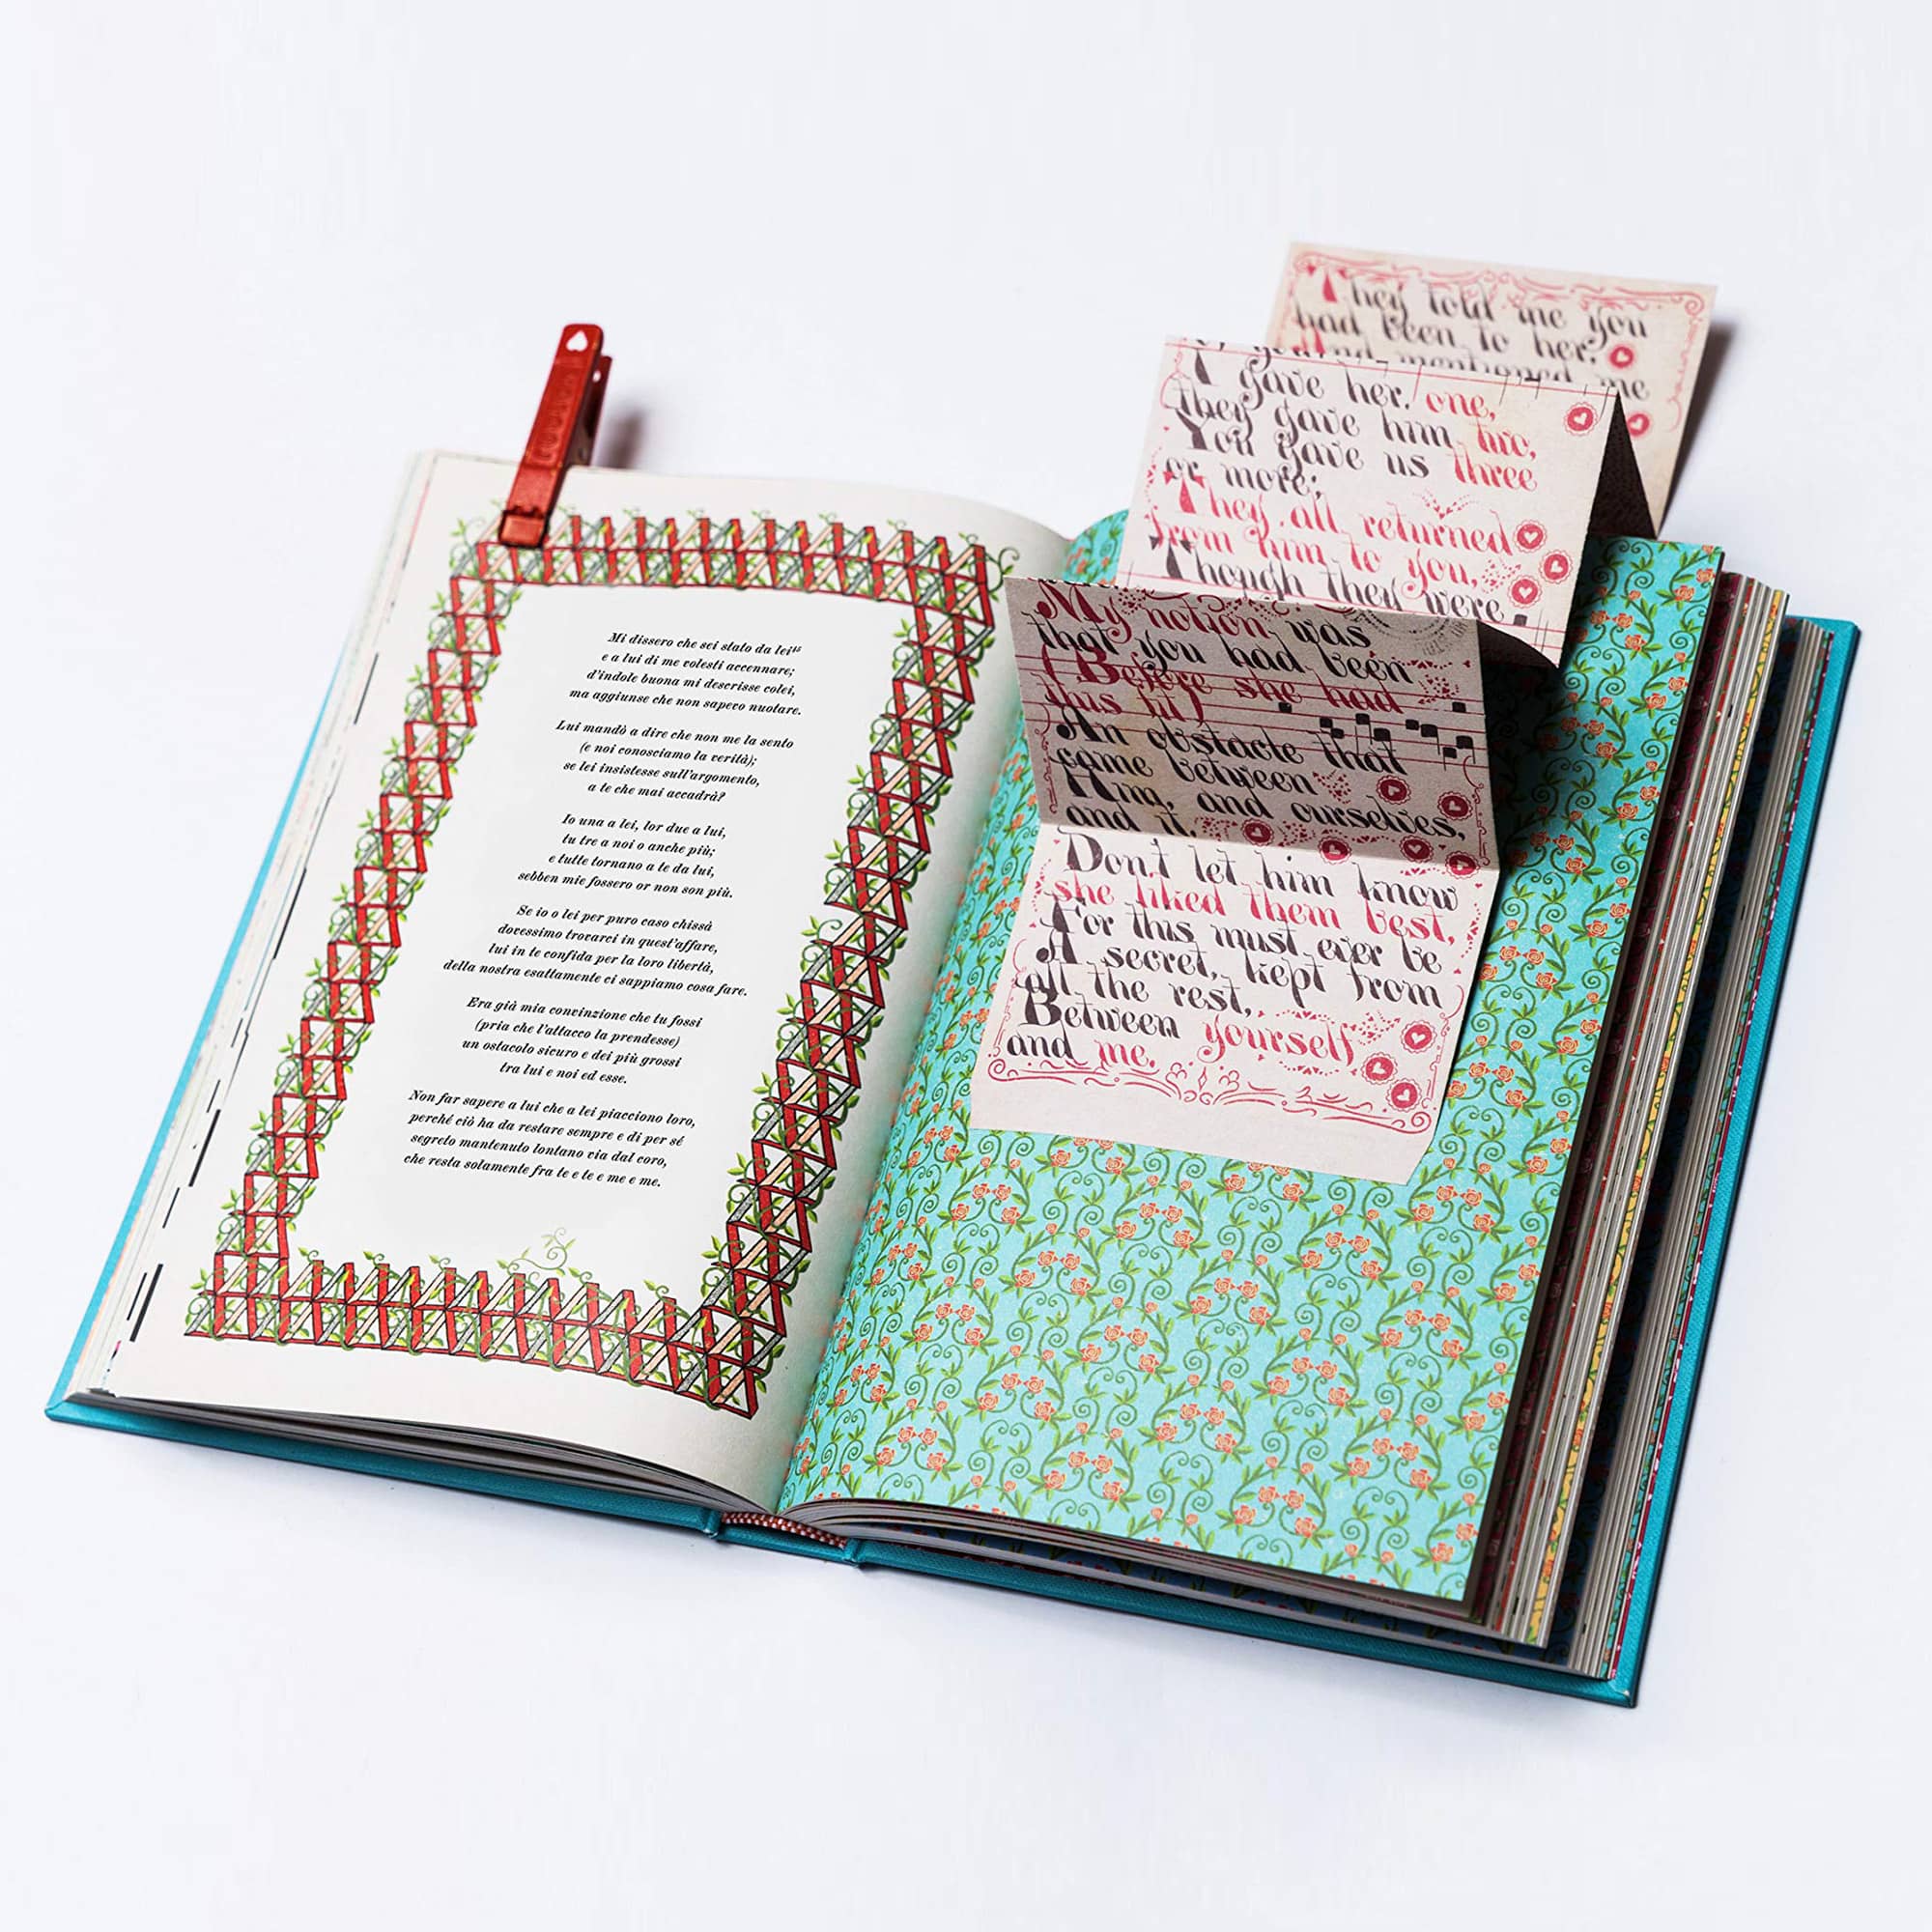 Mi dissero che sei stato da lei⁴⁵
e a lui di me volesti accennare;
d'indole buona mi descrisse colei,
ma aggiunse che non sapevo nuotare.
Lui mandò a dire che non me la sento
(e noi conosciamo la verità);
se lei insistesse sull'argomento,
a te che mai accadrà?
Io una a lei, lor due a lui,
tu tre a noi o anche più;
e tutte tornano a te da lui,
sebben mie fossero or non son più.
Se io o lei per puro caso chissà
dovessimo trovarci in quest'affare,
lui in te confida per la loro libertà,
della nostra esattamente ci sappiamo cosa fare.
Era già mia convinzione che tu fossi
(pria che l'attacco la prendesse)
un ostacolo sicuro e dei più grossi
tra lui e noi ed esse.
Non far sapere a lui che a lei piacciono loro,
perché ciò ha da restare sempre e di per sé
segreto mantenuto lontano via dal coro,
che resta solamente fra te e te e me e me.
They told me you
had been to her,
And mentioned me
I gave her one,
they gave him two,
You gave us three
or more;
They all returned
from him to you,
Though they were
My notion was
that you had been
(Before she had
this fit)
An obstacle that
came between
Him, and ourselves,
and it.
Don't let him know
she liked them best,
For this must ever be
A secret, kept from
all the rest,
Between yourself
and me.